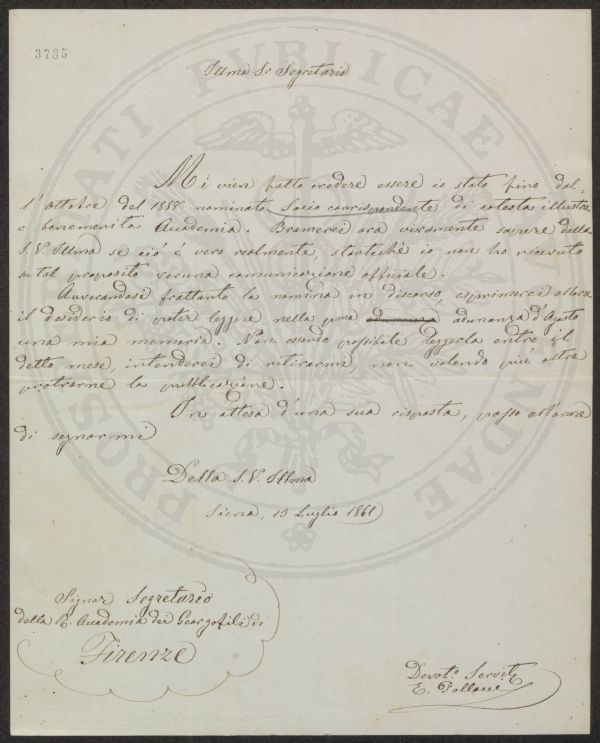 3785
Illmo Sr Segretario
Mi vien fatto credere essere io stato fino dal=
l'ottobre del 1858 nominato Socio corrispondente di cotesta illustre
e benemerita Accademia. Bramerei ora vivamente sapere dalla
S.V. Illma se ciò è vero realmente, stantechè io non ho ricevuto
su tal proposito veruna comunicazione officiale.
Avverandosi frattanto la nomina in discorso, esprimerei allora
il desiderio di poter leggere nella pma adunanza d'Agosto
una mia memoria. Non essendo possibile leggerla entro il
detto mese, intenderei di ritirarmi, non volendo più oltre
protrarne la pubblicazione.
In attesa d'una sua risposta, passo all'onore
di segnarmi
Della S.V. Illma
Siena, 13 Luglio 1861
Signor Segretario
della R. Accademia dei Georgofili di
Firenze
Devoto Servite
E.
PROSPERITATI PUBLICAE AUGENDAE